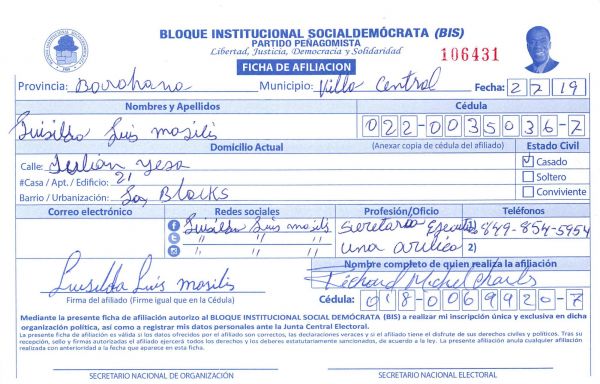 BLOQUE INSTITUCIONAL SOCIALDEMÓCRATA (BIS)
PARTIDO PEÑAGOMISTA
Libertad, Justicia, Democracia y Solidaridad
106431
FICHA DE AFILIACION
Provincia: Barahana Municipio: Villa Central Fecha: 2 7 19
Nombres y Apellidos Cédula
Luis mosilis 022-0035036-7
Domicilio Actual (Anexar copia de cédula del afiliado) Estado Civil
Calle: Julian yesa Casado
#Casa / Apt. / Edificio: 21 Soltero
Barrio / Urbanización: Los Blocks Conviviente
Correo electrónico Redes sociales Profesión/Oficio Teléfonos
Luis mosilis secretaria 1) 849-854-5954
" " " una 2)
" " "
Nombre completo de quien realiza la afiliación
Luisilda Luis mosilis Richard Michel Charles
Firma del afiliado (Firme igual que en la Cédula) Cédula: 018-0069920-7
Mediante la presente ficha de afiliación autorizo al BLOQUE INSTITUCIONAL SOCIAL DEMÓCRATA (BIS) a realizar mi inscripción única y exclusiva en dicha
organización política, así como a registrar mis datos personales ante la Junta Central Electoral.
La presente ficha de afiliación es válida si los datos ofrecidos por el afiliado son correctos, las declaraciones veraces y si el afiliado tiene el disfrute de sus derechos civiles y políticos. Tras su
recepción, sello y firmas autorizadas el afiliado ejercerá todos los derechos y los deberes estatutariamente sancionados, de acuerdo a la ley. La presente afiliación anula cualquier afiliación
realizada con anterioridad a la fecha que aparece en esta ficha.
SECRETARIO NACIONAL DE ORGANIZACIÓN SECRETARIO NACIONAL ELECTORAL